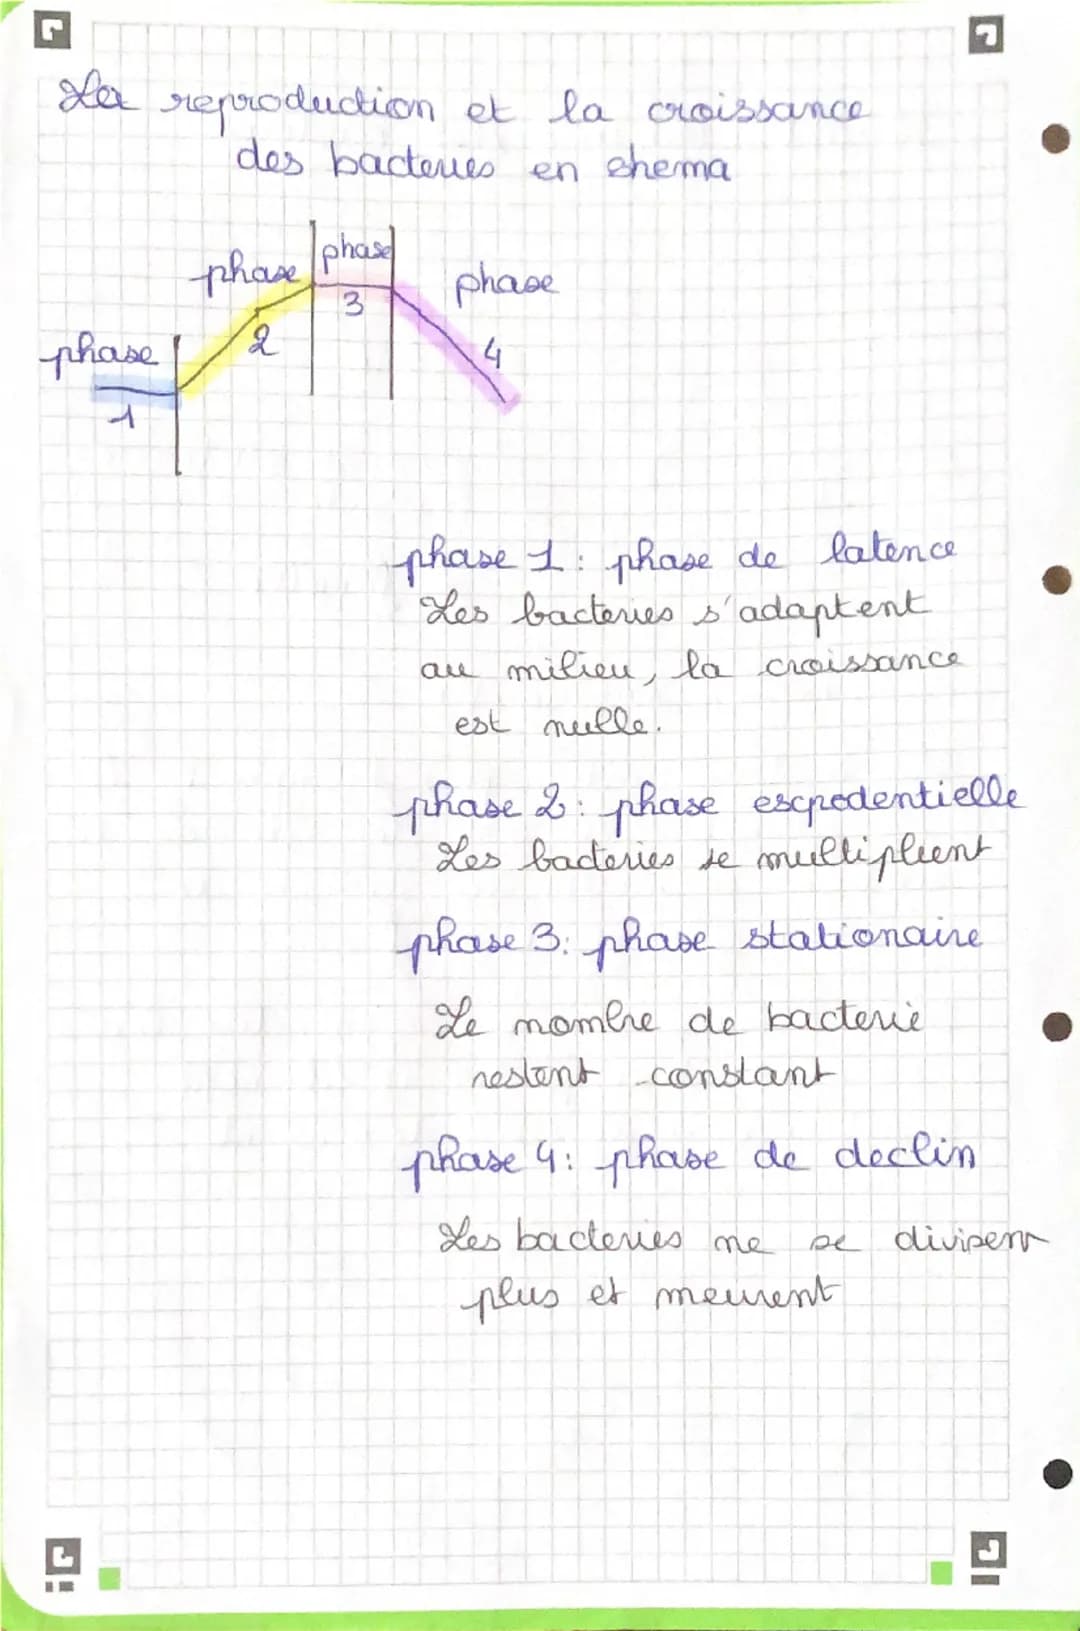 La reproduction et la croissance
des bacteries en shema
phase
phase
phase
phase
1
2
3
4
phase 1: phase de latence
Les bacteries s'adaptent
au milieu, la croissance
est nulle.
phase 2: phase escpodentielle
Les bacteries se multiplient
phase 3: phase stationaire
Le nombre de bacterie
restent constant
phase 4: phase de declin
Les bacteries ne se divisent
plus et meurent